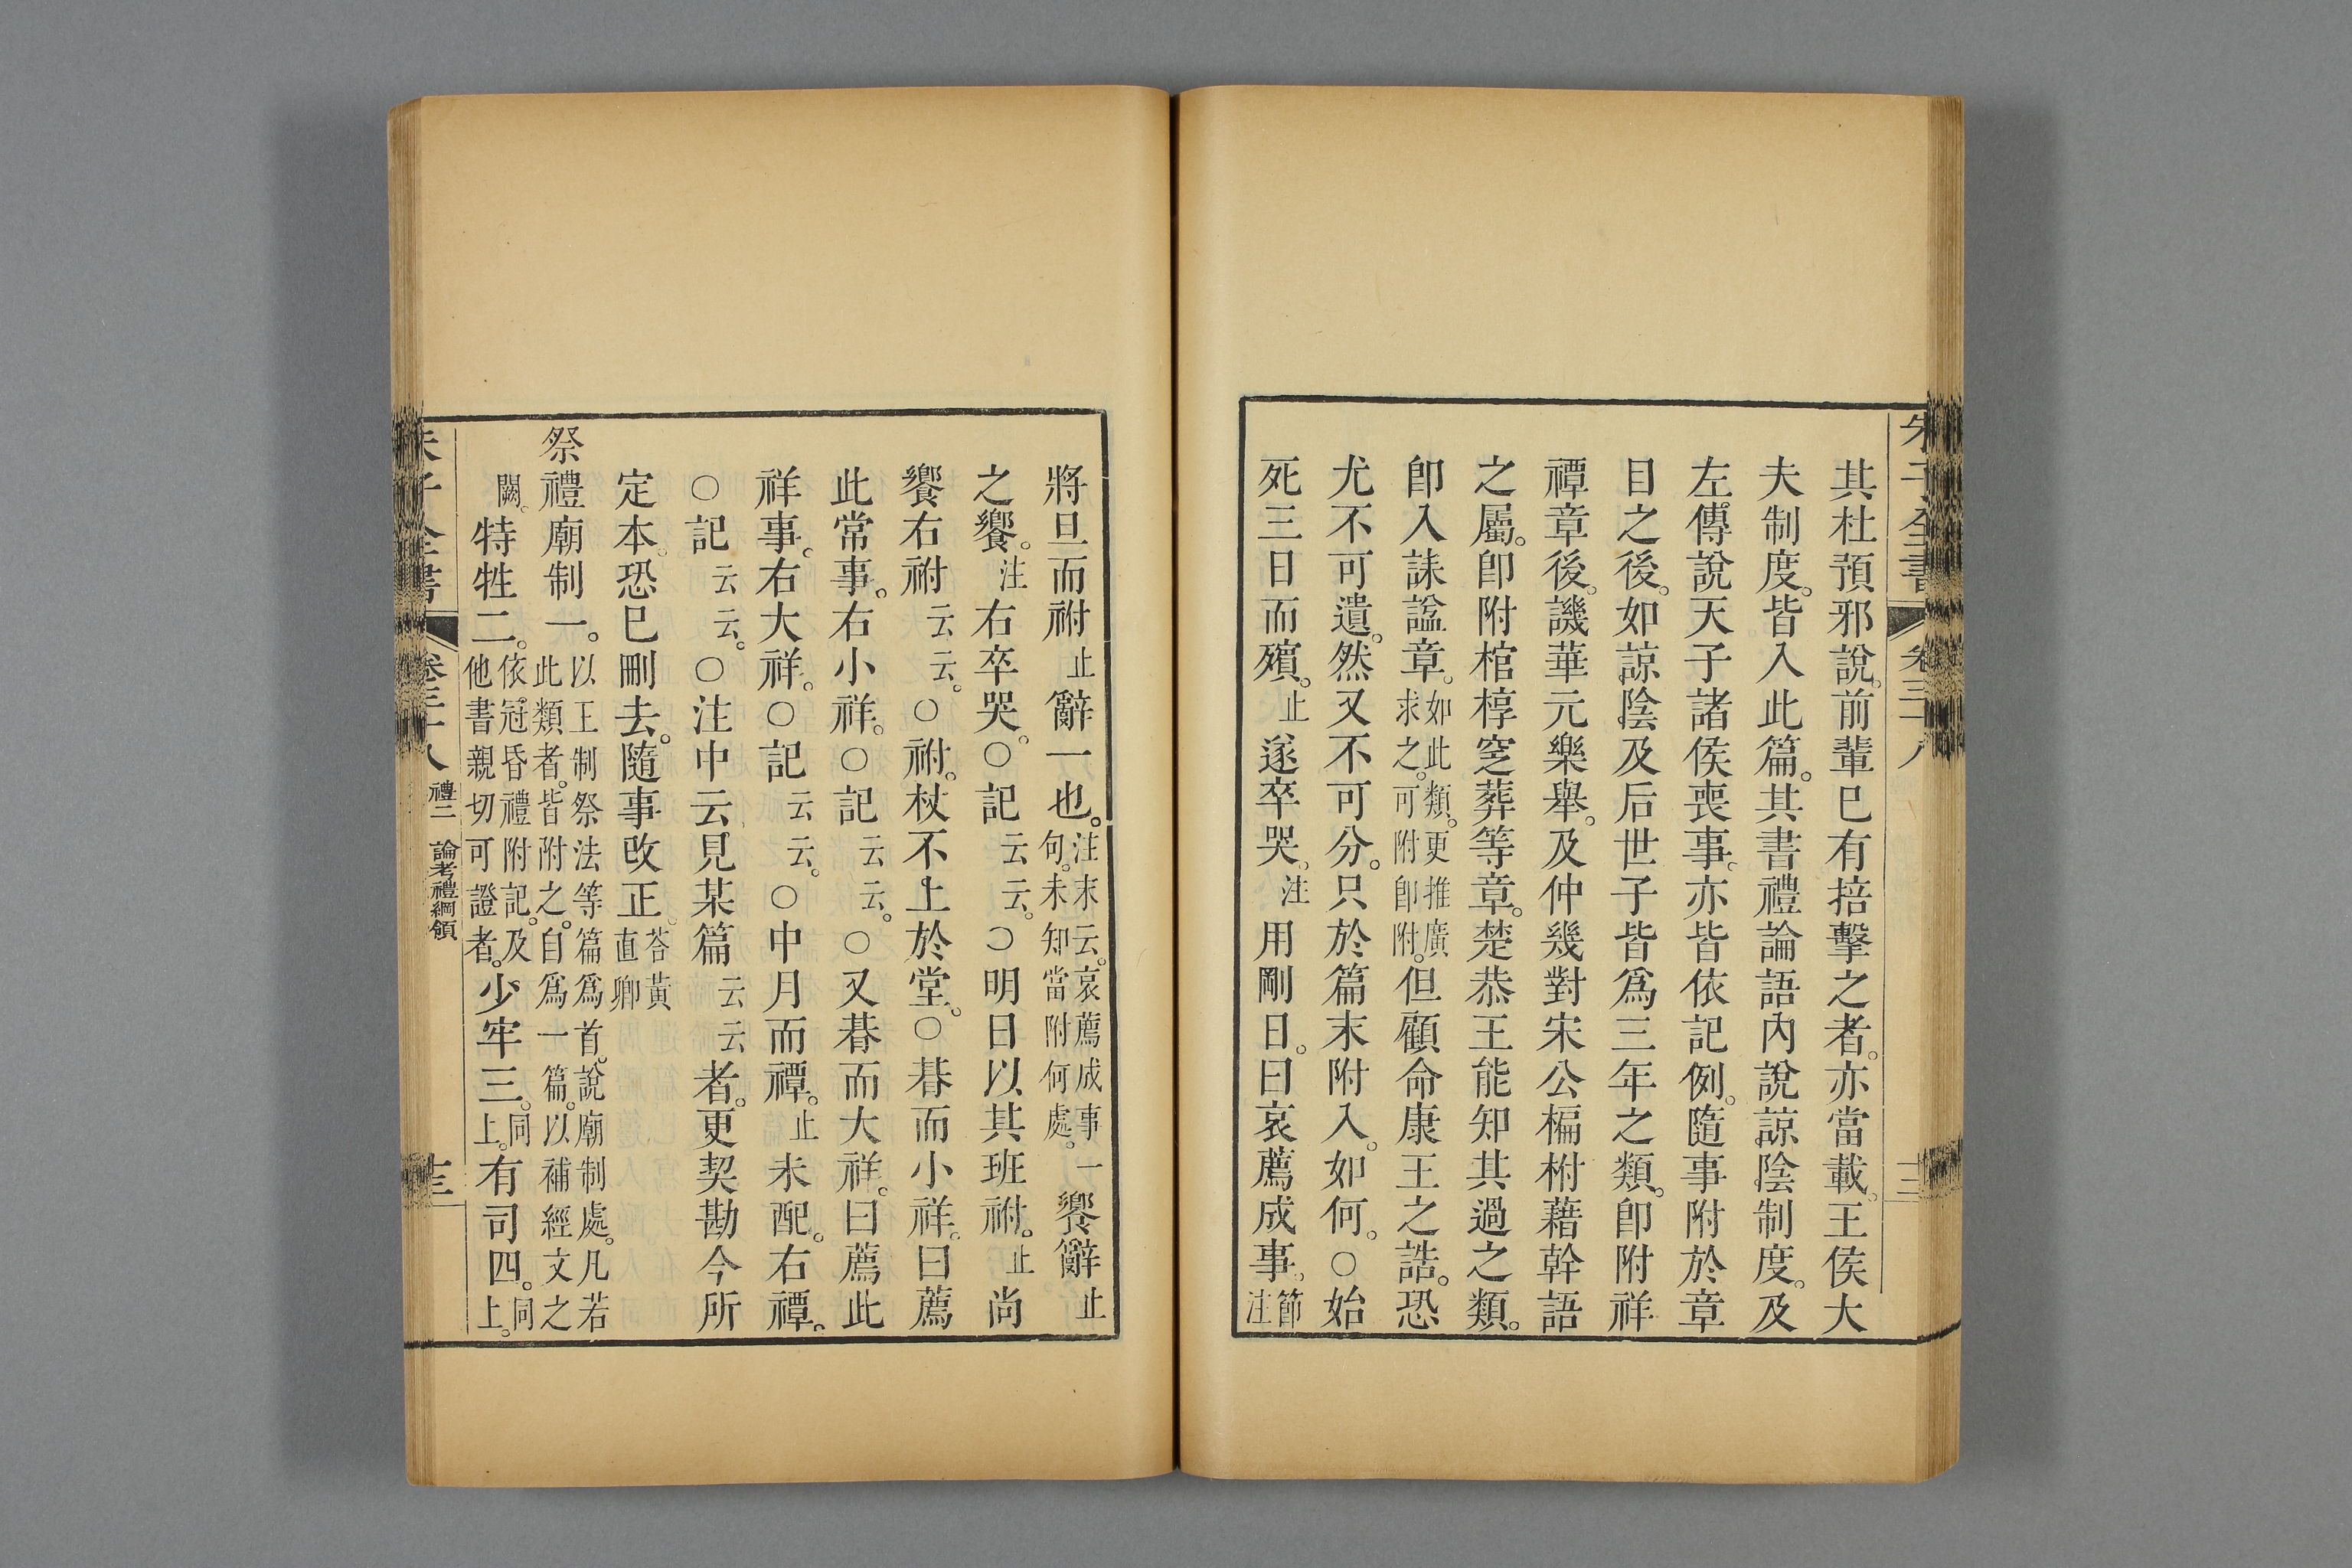 其杜預邪說。前輩已有掊擊之者。亦當載。王侯大
夫制度。皆入此篇。其書禮論語內說諒陰制度。及
左傳說天子諸侯喪事。亦皆依記例。隨事附於章
目之後。如諒陰及后世子皆爲三年之類。卽附祥
禫章後。譏華元樂舉。及仲幾對宋公楄柎藉幹語
之屬。卽附棺椁窆葬等章。楚恭王能知其過之類。
卽入誄諡章。如此類。更推廣求之。可附卽附。但顧命康王之誥。恐
尤不可遺。然又不可分。只於篇末附入。如何。○始
死三日而殯。止遂卒哭。注用剛日。曰哀薦成事。節注
將旦而祔止辭一也。注末云。哀薦成事一句。未知當附何處。饗辭止
之饗。注右卒哭。○記云云。○明日以其班祔。止尚
饗右祔云云。○祔。杖不上於堂。○朞而小祥。曰薦
此常事。右小祥。○記云云。○又朞而大祥。曰薦此
祥事。右大祥。○記云云。○中月而禫。止未配。右禫。
○記云云。○注中云見某篇云云者。更契勘今所
定本。恐已刪去。隨事改正。荅黃直卿
祭禮廟制一。以王制祭法等篇爲首。說廟制處。凡若此類者。皆附之。自爲一篇。以補經文之
闕。特牲二。依冠昏禮附記。及他書親切可證者。少牢三。同上。有司四。同上。
朱子全書 卷三十八 禮二 論考禮綱領 十三